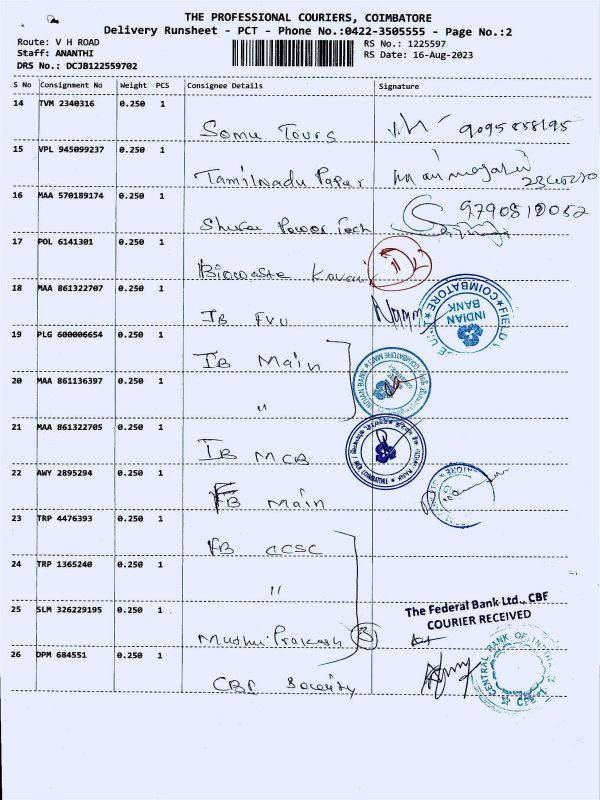 THE PROFESSIONAL COURIERS, COIMBATORE
Delivery Runsheet - PCT - Phone No.:0422-3505555 - Page No.:2
Route: V H ROAD
Staff: ANANTHI
DRS No.: DCJB122559702
RS No.: 1225597
RS Date: 16-Aug-2023
S No Consignment No Weight PCS Consignee Details Signature
14 TVM 2340316 0.250 1
Somu Tours 9095858195
15 VPL 945099237 0.250 1
Tamilnadu Paper
16 MAA 570189174 0.250 1
Power Tech 9790812052
17 POL 6141301 0.250 1
Biowaste
18 MAA 861322707 0.250 1
IB
FIELD COIMBATORE
INDIAN BANK
19 PLG 600006654 0.250 1
IB Main
20 MAA 861136397 0.250 1
"
INDIAN BANK COIMBATORE MAIN
21 MAA 861322705 0.250 1
IB MCB
INDIAN BANK
COIMBATORE
22 AWY 2895294 0.250 1
FB Main
23 TRP 4476393 0.250 1
FB CCSC
24 TRP 1365240 0.250 1
"
25 SLM 326229195 0.250 1
Muthu Prakash 3
The Federal Bank Ltd., CBF
COURIER RECEIVED
26 DPM 684551 0.250 1
CBF Society
CENTRAL BANK OF INDIA